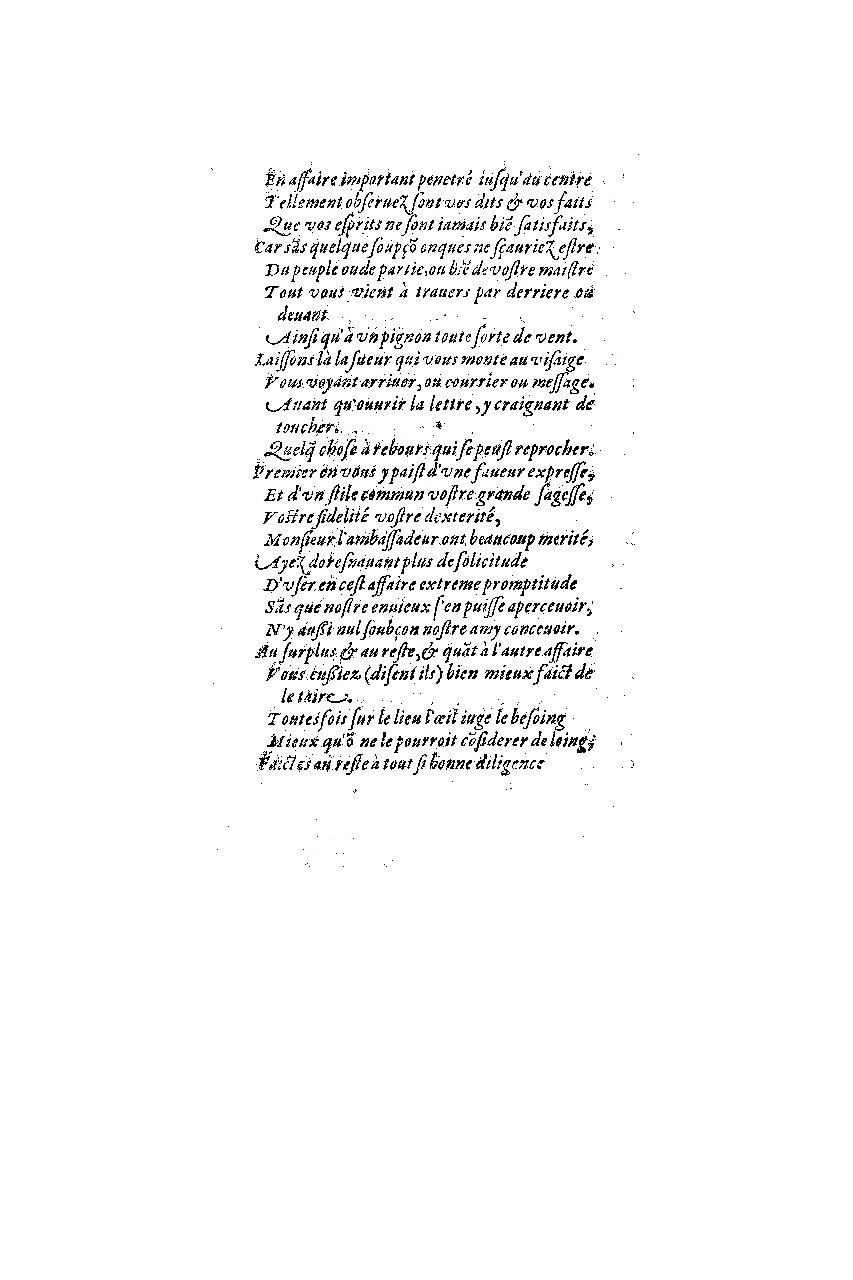 En affaire important penetré iusqu'au centre
Tellement obseruez sont vos dits & vos faits
Que vos esprits ne sont iamais biē satisfaits,
Car sās quelque soupçō onques ne sçauriez estre
Du peuple ou de partie, ou biē de vostre maistre
Tout vous vient à trauers par derriere ou
deuant
Ainsi qu'à vn pignon toute sorte de vent.
Laissons là la sueur qui vous monte au visaige
Vous voyant arriuer, ou courrier ou message.
Auant qu'ouurir la lettre, y craignant de
toucher.
Quelq̄ chose à rebours qui se peust reprocher.
Premier en vous y paist d'vne faueur expresse,
Et d'vn stile commun vostre grande sagesse,
Vostre fidelité vostre dexterité,
Monsieur l'ambassadeur ont beaucoup merité,
Ayez doresnauant plus de solicitude
D'vser en cest affaire extreme promptitude
Sās que nostre enuieux s'en puisse aperceuoir,
N'y aussi nul soubçon nostre amy conceuoir.
Au surplus & au reste, & quāt à l'autre affaire
Vous eussiez (disent ils) bien mieux faict de
le taire.
Toutesfois sur le lieu l'œil iuge le besoing
Mieux qu'ō ne le pourroit cōsiderer de loing,
Faictes au reste à tout si bonne diligence